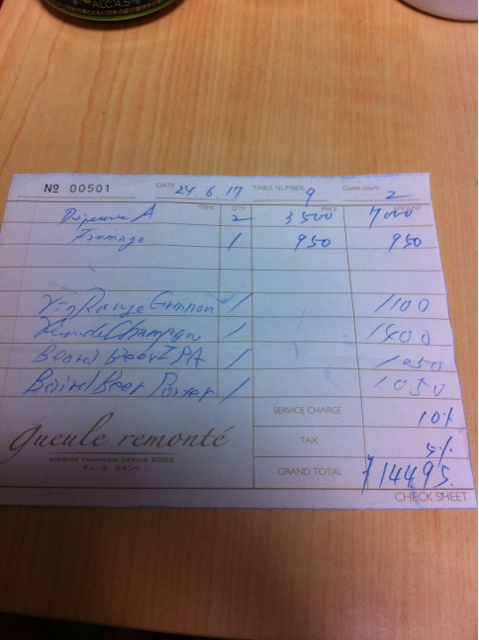 ALC.4.5%
№ 00501 DATE 24 6.17 TABLE NUMBER 9 Guest count 2
ITEMS QTY PRICE AMOUNT
Dejeuner A 2 3500 7000
Fromage 1 950 950
Vin Rouge 1 1100
1 1400
Beer IPA 1 1050
Baird Beer Porter 1 1050
SERVICE CHARGE 10%
TAX 5%
GRAND TOTAL ¥14495.
gueule remonté
CUISINE FRANCAIS DEPUIS 2002
CHECK SHEET